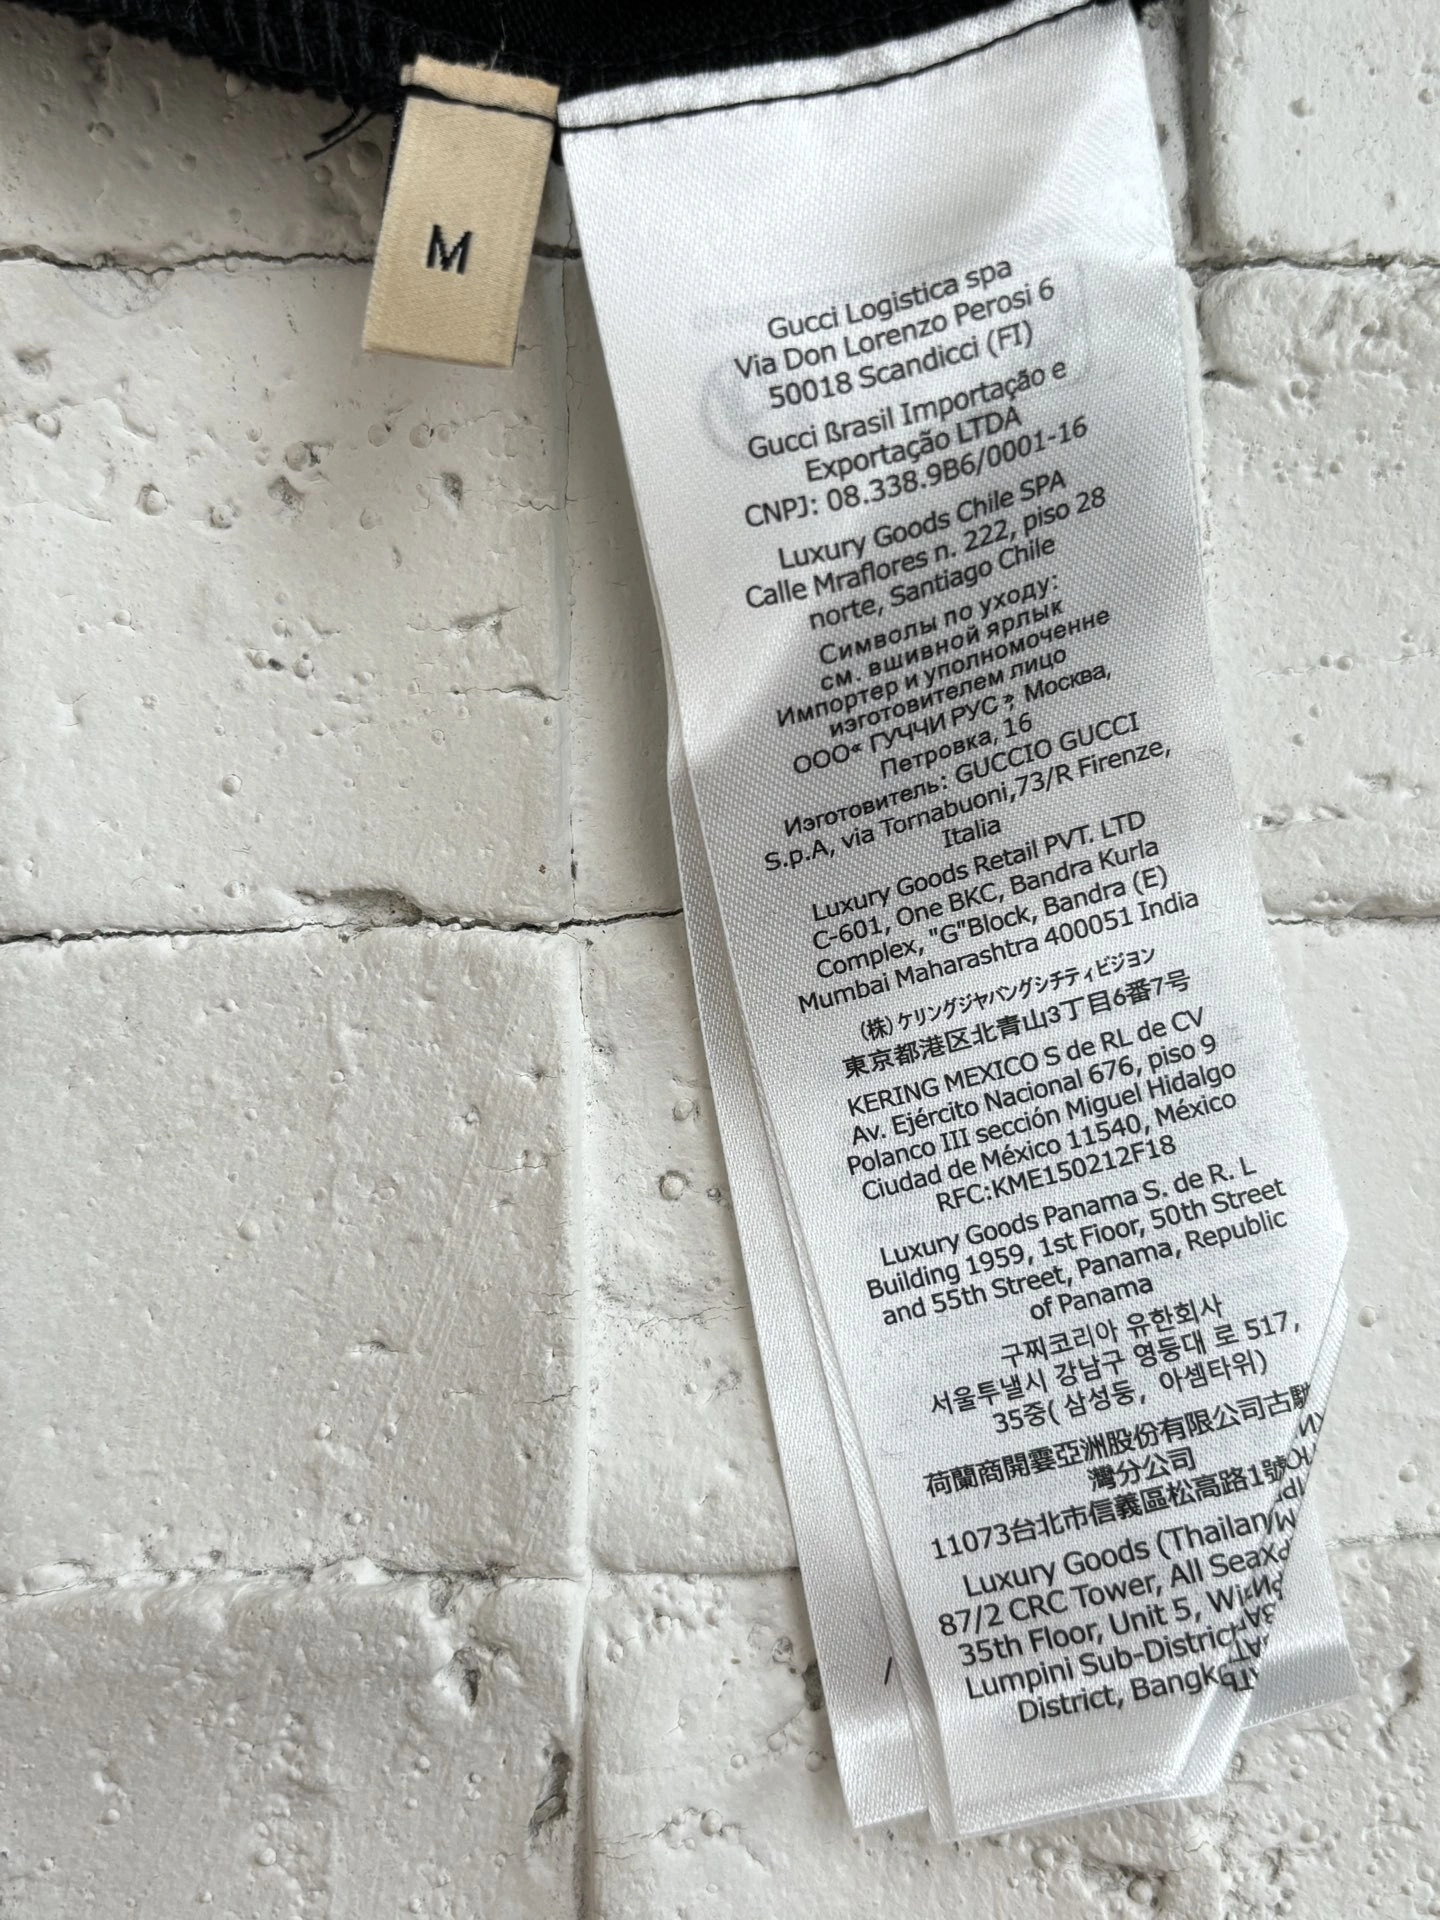 M
Gucci Logistica spa
Via Don Lorenzo Perosi 6
50018 Scandicci (FI)
Gucci ßrasil Importação e
Exportação LTDA
CNPJ: 08.338.9B6/0001-16
Luxury Goods Chile SPA
Calle Mraflores n. 222, piso 28
norte, Santiago Chile
Символы по уходу:
см. вшивной ярлык
Импортер и уполномоченне
изготовителем лицо
ООО« ГУЧЧИ РУС », Москва,
Петровка, 16
Изготовитель: GUCCIO GUCCI
S.p.A, via Tornabuoni,73/R Firenze,
Italia
Luxury Goods Retail PVT. LTD
C-601, One BKC, Bandra Kurla
Complex, "G"Block, Bandra (E)
Mumbai Maharashtra 400051 India
(株)ケリングジャバングシチティビジョン
東京都港区北青山3丁目6番7号
KERING MEXICO S de RL de CV
Av. Ejército Nacional 676, piso 9
Polanco III sección Miguel Hidalgo
Ciudad de México 11540, México
RFC:KME150212F18
Luxury Goods Panama S. de R. L
Building 1959, 1st Floor, 50th Street
and 55th Street, Panama, Republic
of Panama
구찌코리아 유한회사
서울투낼시 강남구 영등대 로 517,
35중( 삼성둥, 아셈타위)
荷蘭商開雲亞洲股份有限公司古馳
灣分公司
11073台北市信義區松高路1號
Luxury Goods (Thailan
87/2 CRC Tower, All Sea
35th Floor, Unit 5, Wi
Lumpini Sub-Distric
District, Bangk